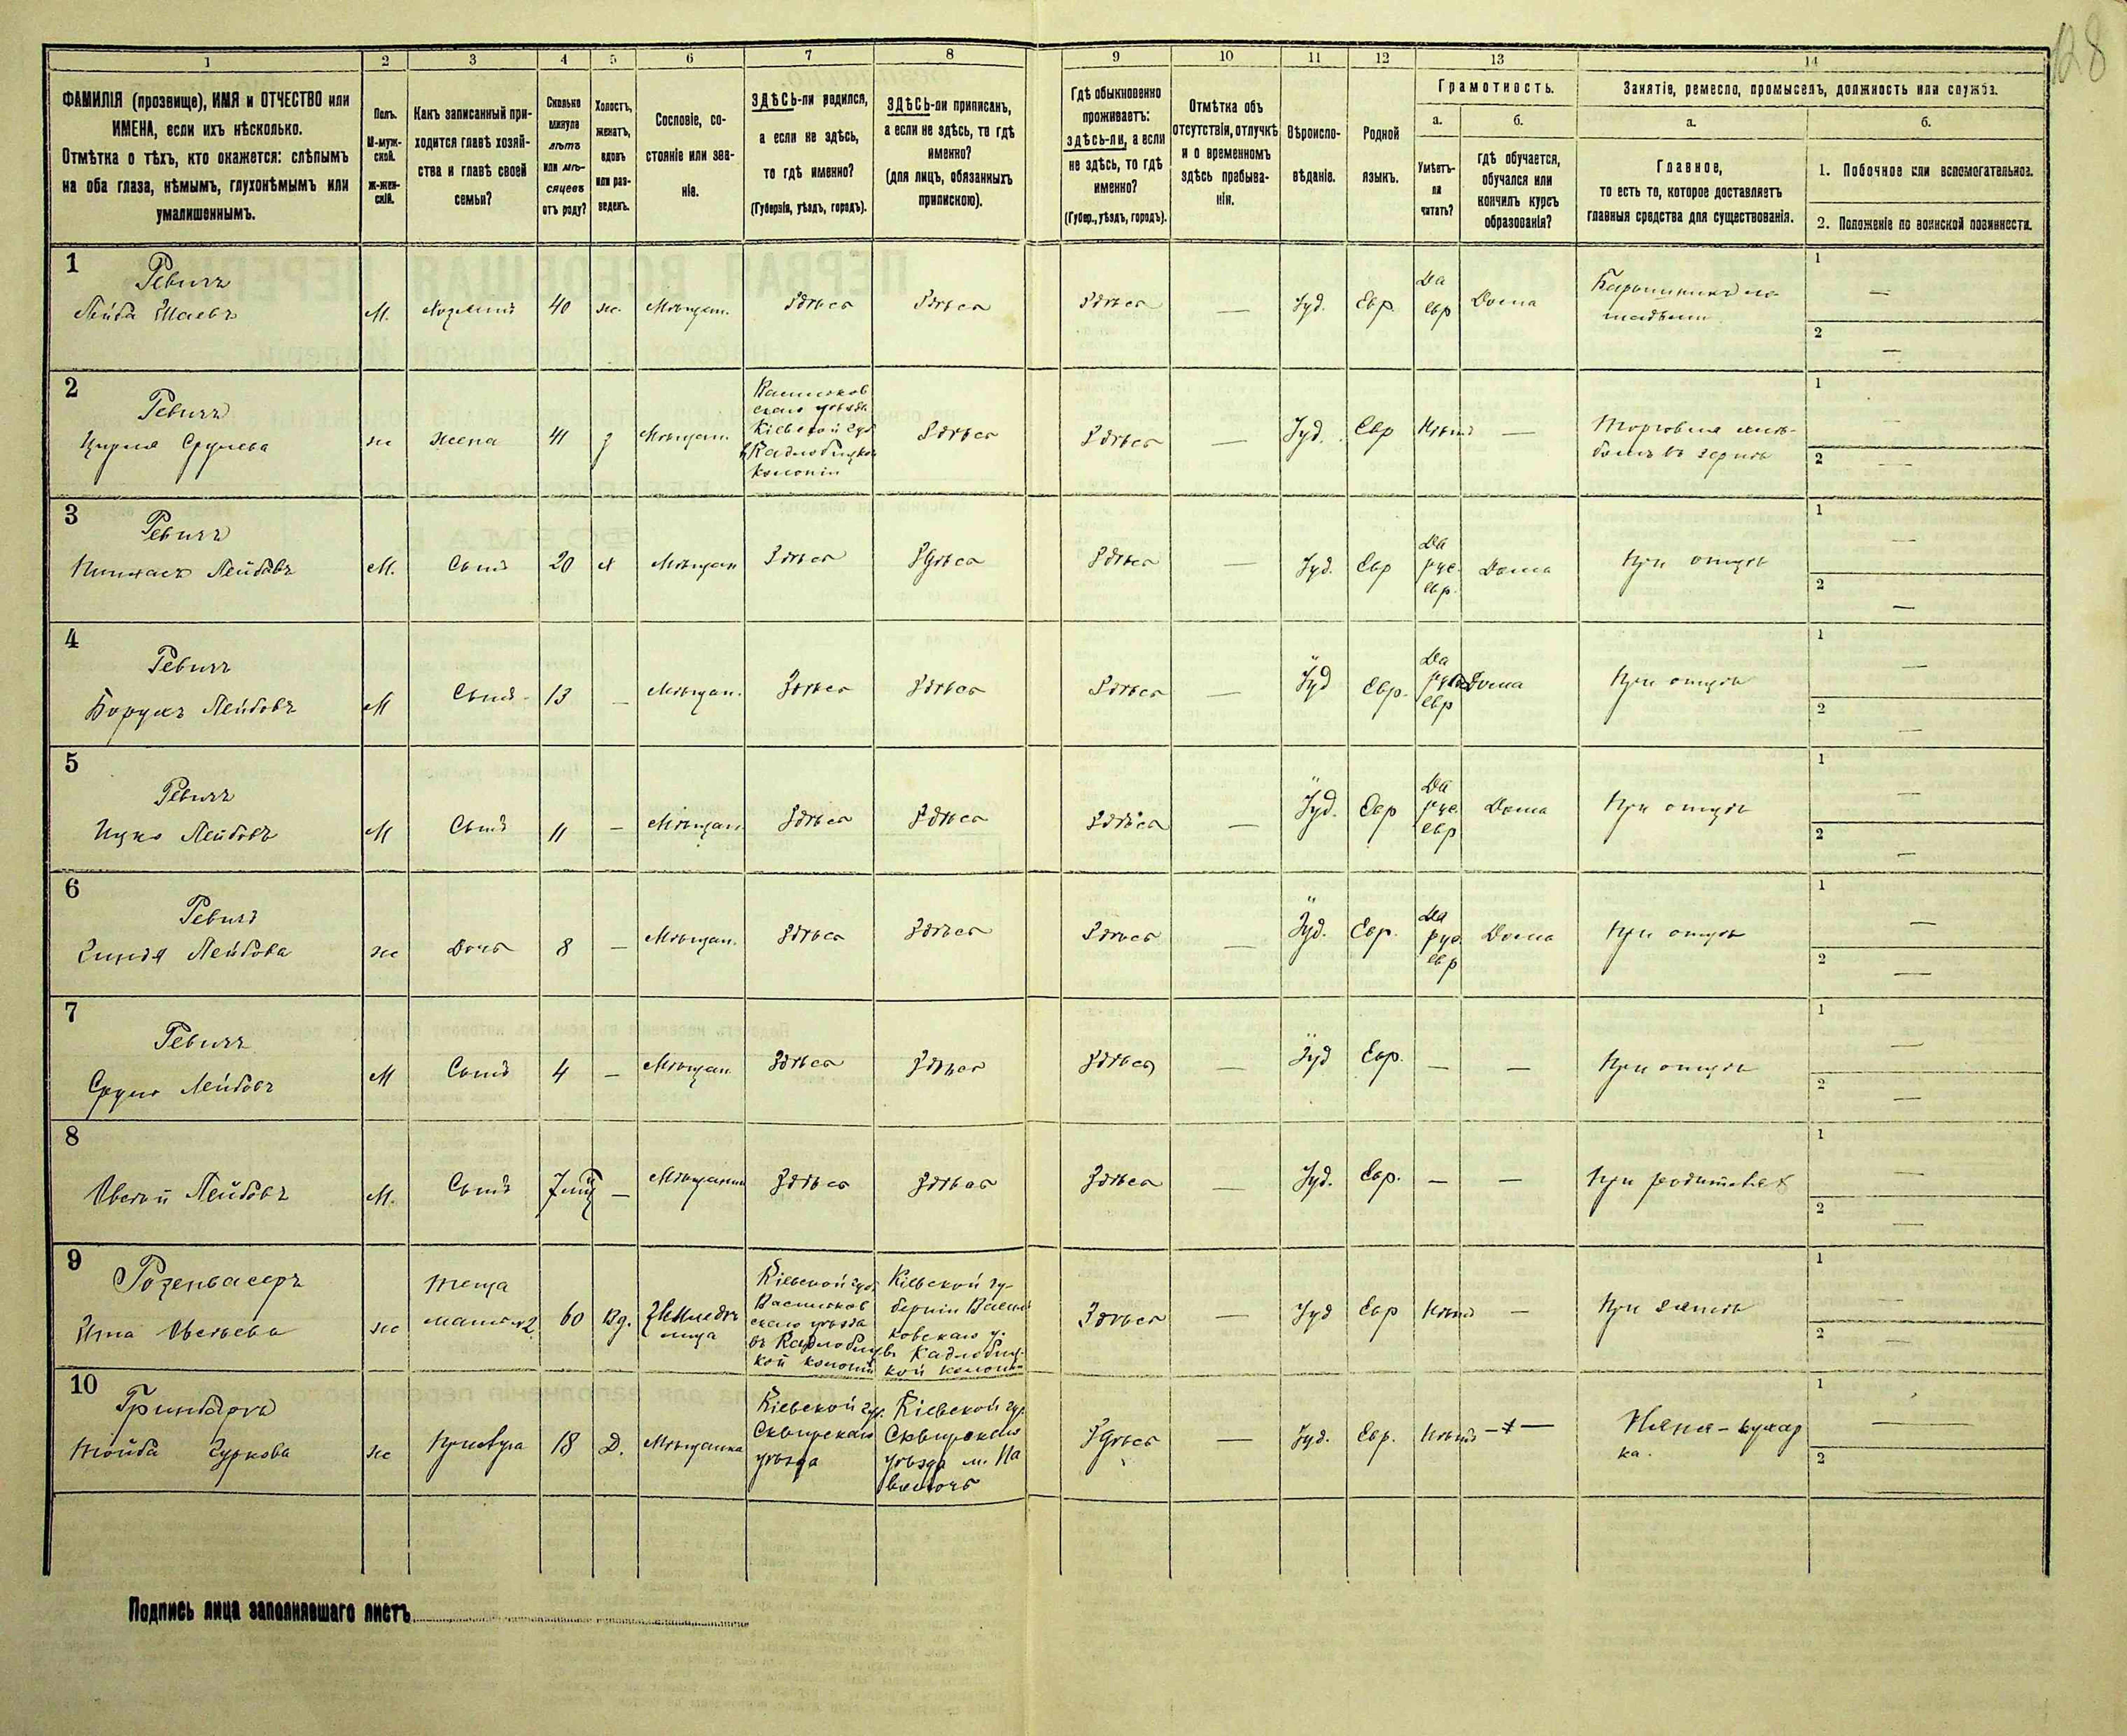 128
1 2 3 4 5 6 7 8 9 10 11 12 13 14
ФАМИЛІЯ (прозвище), ИМЯ и ОТЧЕСТВО или
ИМЕНА, если ихъ нѣсколько.
Отмѣтка о тѣхъ, кто окажется: слѣпымъ
на оба глаза, нѣмымъ, глухонѣмымъ или
умалишеннымъ.
Полъ.
М-муж-
ской.
Ж-жен-
скій.
Какъ записанный при-
ходится главѣ хозяй-
ства и главѣ своей
семьи?
Сколько
минуло
лѣтъ
или мѣ-
сяцевъ
отъ роду?
Холостъ,
женатъ,
вдовъ
или раз-
веденъ.
Сословіе, со-
стояніе или зва-
ніе.
ЗДѢСЬ-ли родился,
а если не здѣсь,
то гдѣ именно?
(Губернія, уѣздъ, городъ).
ЗДѢСЬ-ли приписанъ,
а если не здѣсь, то гдѣ
именно?
(для лицъ, обязанныхъ
припискою).
Гдѣ обыкновенно
проживаетъ:
здѣсь-ли, а если
не здѣсь, то гдѣ
именно?
(Губер., уѣздъ, городъ).
Отмѣтка объ
отсутствіи, отлучкѣ
и о временномъ
здѣсь пребыва-
ніи.
Вѣроиспо-
вѣданіе.
Родной
языкъ.
Грамотность.
а.
Умѣетъ-
ли
читать?
б.
гдѣ обучается,
обучался или
кончилъ курсъ
образованія?
Занятіе, ремесло, промыселъ, должность или служба.
а.
Главное,
то есть то, которое доставляетъ
главныя средства для существованія.
б.
1. Побочное или вспомогательное.
2. Положеніе по воинской повинности.
1
Ревичъ
Лейба Шаевъ
М. Хозяинъ 40 ж. Мѣщан. Здѣсь Здѣсь Здѣсь — Іуд. Евр.
Да
евр
Дома
1 —
2 —
2
Ревичъ
Срулева
ж жена 41 з Мѣщан.
Васильков
скаго уѣзда
Кіевской губ
въ Кадлобицкой
колоніи
Здѣсь Здѣсь — Іуд. Евр Нѣтъ —
Торговля хлѣ-
бомъ въ зернѣ
1 —
2 —
3
Ревичъ
Пинхасъ Лейбовъ
М. Сынъ 20 х Мѣщан Здѣсь Здѣсь Здѣсь — Іуд. Евр
Да
рус.
евр.
Дома При отцѣ
1 —
2 —
4
Ревичъ
Борухъ Лейбовъ
М Сынъ 13 — Мѣщан. Здѣсь Здѣсь Здѣсь — Іуд Евр.
Да
рус
евр
Дома При отцѣ
1 —
2 —
5
Ревичъ
Ицко Лейбовъ
М Сынъ 11 — Мѣщан. Здѣсь Здѣсь Здѣсь — Іуд. Евр
Да
рус.
евр
Дома При отцѣ
1 —
2 —
6
Ревичъ
Лейбова
ж Дочь 8 — Мѣщан. Здѣсь Здѣсь Здѣсь — Іуд. Евр.
Да
рус.
евр
Дома При отцѣ
1 —
2 —
7
Ревичъ
Сруль Лейбовъ
М Сынъ 4 — Мѣщан. Здѣсь Здѣсь Здѣсь — Іуд Евр. — — При отцѣ
1 —
2 —
8
Овсѣй Лейбовъ
М. Сынъ — Мѣщанин Здѣсь Здѣсь Здѣсь — Іуд. Евр. — — При родителях
1 —
2 —
9
Розенвасеръ
Овсѣева
ж
теща
мать №2
60 Вд.
Земледѣ
лица
Кіевской губ.
Васильков
скаго уѣзда
въ Кадлобиц
кой колоніи
Кіевской гу-
берніи Василь
ковскаго у.
въ Кадлобиц-
кой колоніи
Здѣсь — Іуд Евр Нѣтъ — При зятѣ
1 —
2 —
10
Гринбергъ
Тойба
ж Прислуга 18 Д. Мѣщанка
Кіевской губ.
Сквирскаго
уѣзда
Кіевской гу.
Сквирскаго
уѣзда м. Па
волочь
Здѣсь — Іуд. Евр. Нѣтъ —
Няня-кухар
ка.
1 —
2 —
Подпись лица заполнявшаго листъ